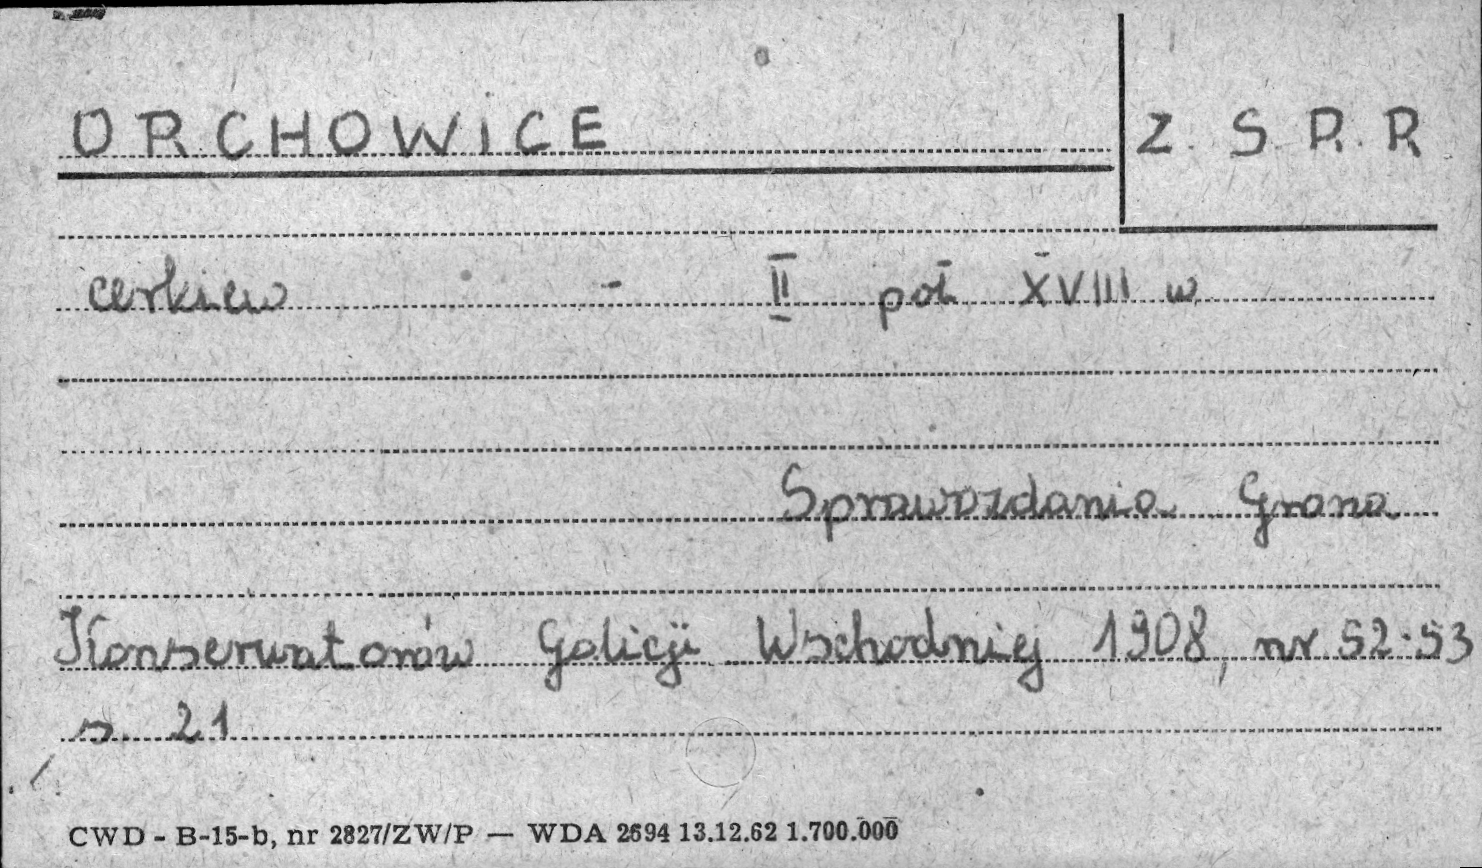 ORCHOWICE
Z. S. R. R
cerkiew - II poł XVIII w
Sprawozdania Grona
Konserwatorów Galicji Wschodniej 1908, nr 52-53
s. 21
CWD - B-15-b, nr 2827/ZW/P — WDA 2694 13.12.62 1.700.000